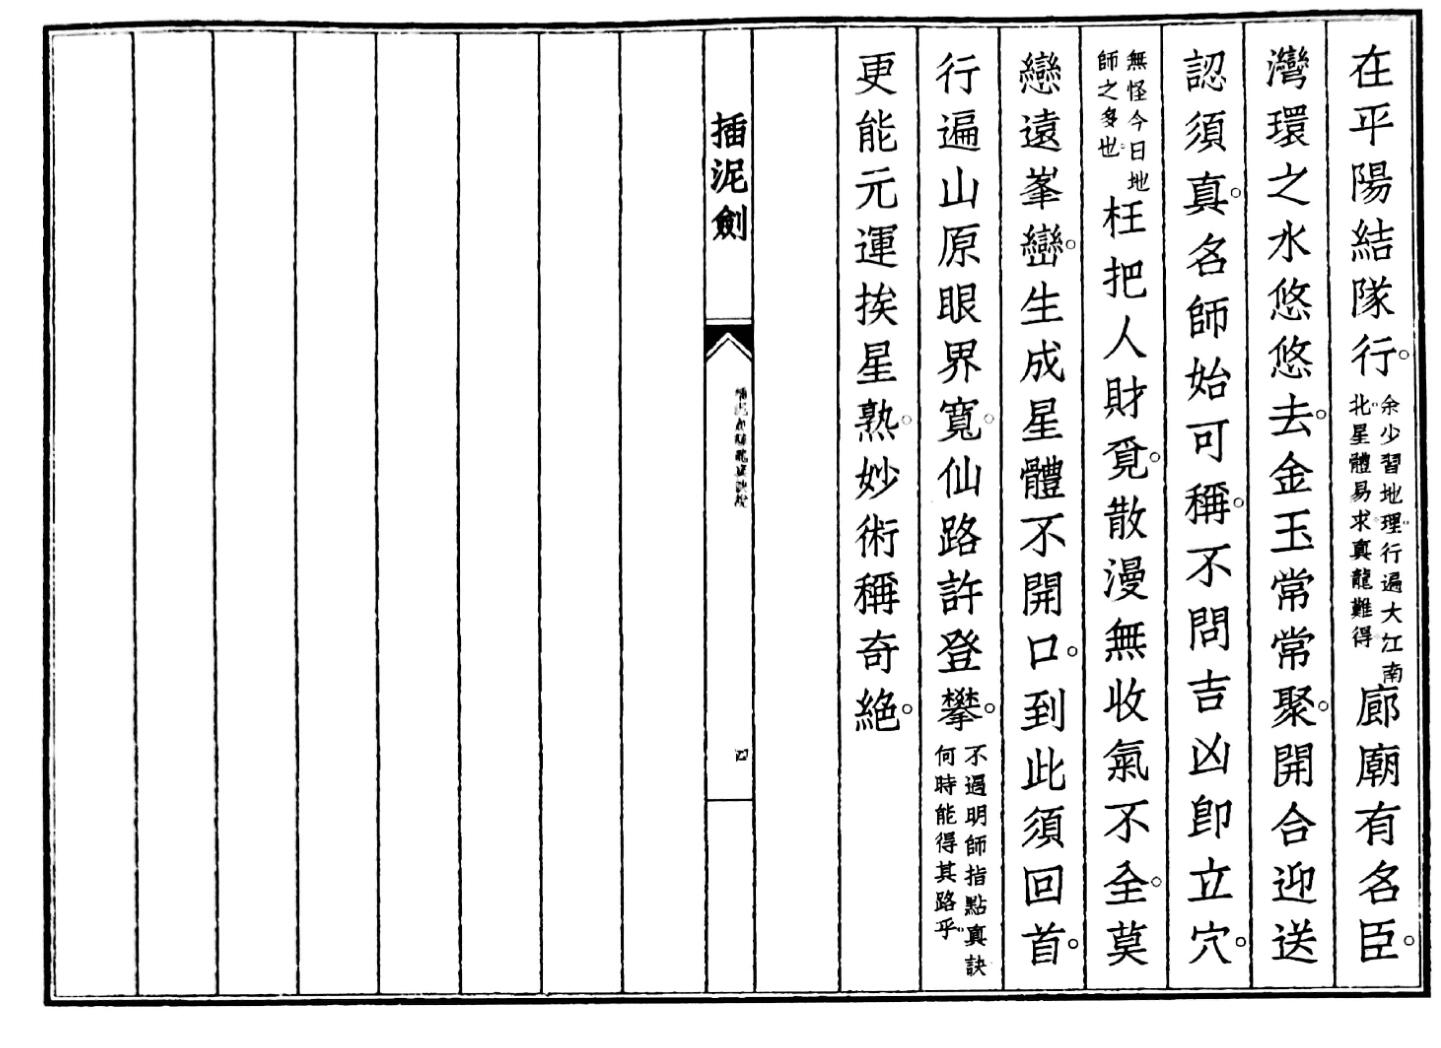 在平陽結隊行。余少習地理行遍大江南北星體易求真龍難得廊廟有名臣。
灣環之水悠悠去。金玉常常聚。開合迎送
認須真。名師始可稱。不問吉凶卽立穴。
無怪今日地師之多也枉把人財覓。散漫無收氣不全。莫
戀遠峯巒。生成星體不開口。到此須回首。
行遍山原眼界寬。仙路許登攀。不遇明師指點真訣何時能得其路乎
更能元運挨星熟。妙術稱奇絶。
插泥劍
四